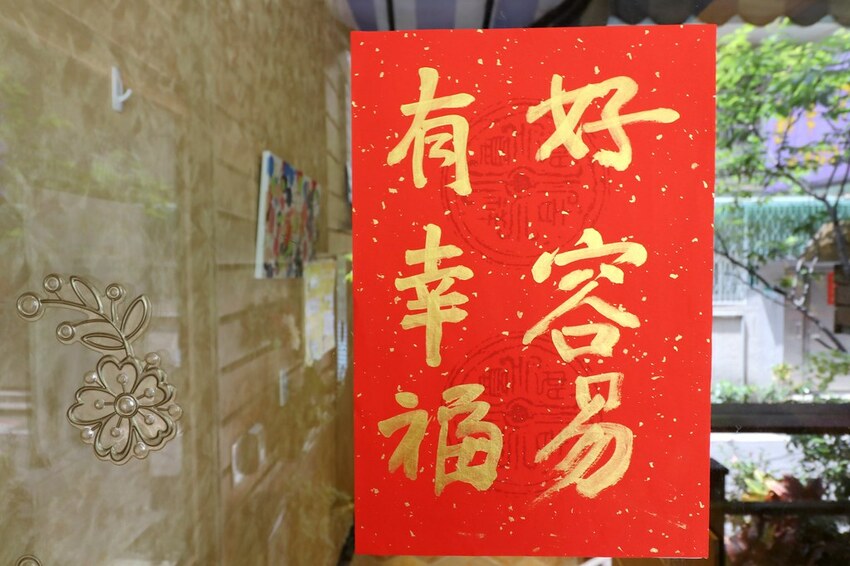 好容易
有幸福